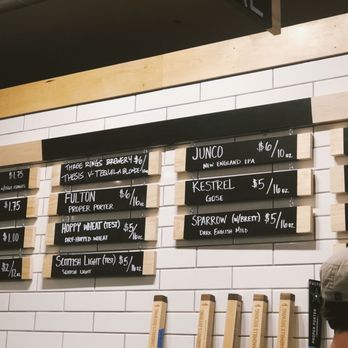 $1.75
$1.75
$1.00
$2/2oz
THREE RINGS BREWERY $6/
THESIS V-TEQUILA BLONDE/
FULTON $5/16oz
PROPER PORTER
HOPPY WHEAT (TEST) $5/16oz
DRY-HOPPED WHEAT
SCOTTISH LIGHT (TEST) $5/16oz
SCOTTISH LIGHT
JUNCO $6/10oz
NEW ENGLAND IPA
KESTREL $5/16oz
GOSE
SPARROW (W/BRETT) $5/16oz
DARK ENGLISH MILD